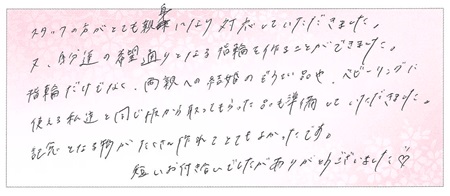 スタッフの方がとても親身になり対応していただきました。
又、自分達の希望通りとなる指輪を作ることができました。
指輪だけでなく、両親への結婚のもらい品や、ベビーリングに
使える私達と同じ板から取ってもらった品も準備していただきました。
記念となる物がたくさん作れてとてもよかったです。
短いお付き合いでしたがありがとうございました♡